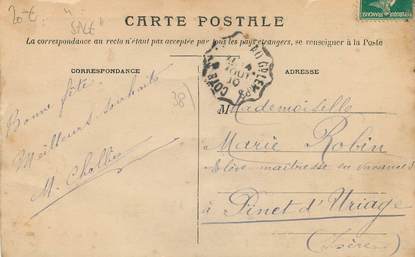 20 €
SAGE
CARTE POSTALE
La correspondance au recto n'étant pas acceptée par tous les pays étrangers, se renseigner à la Poste
CORRESPONDANCE
ADRESSE
Bonne fête.
Meilleurs souhaits
38)
Mademoiselle
Marie Robin
Elève maîtresse en vacances
à Pinet d'Uriage
(Isère)